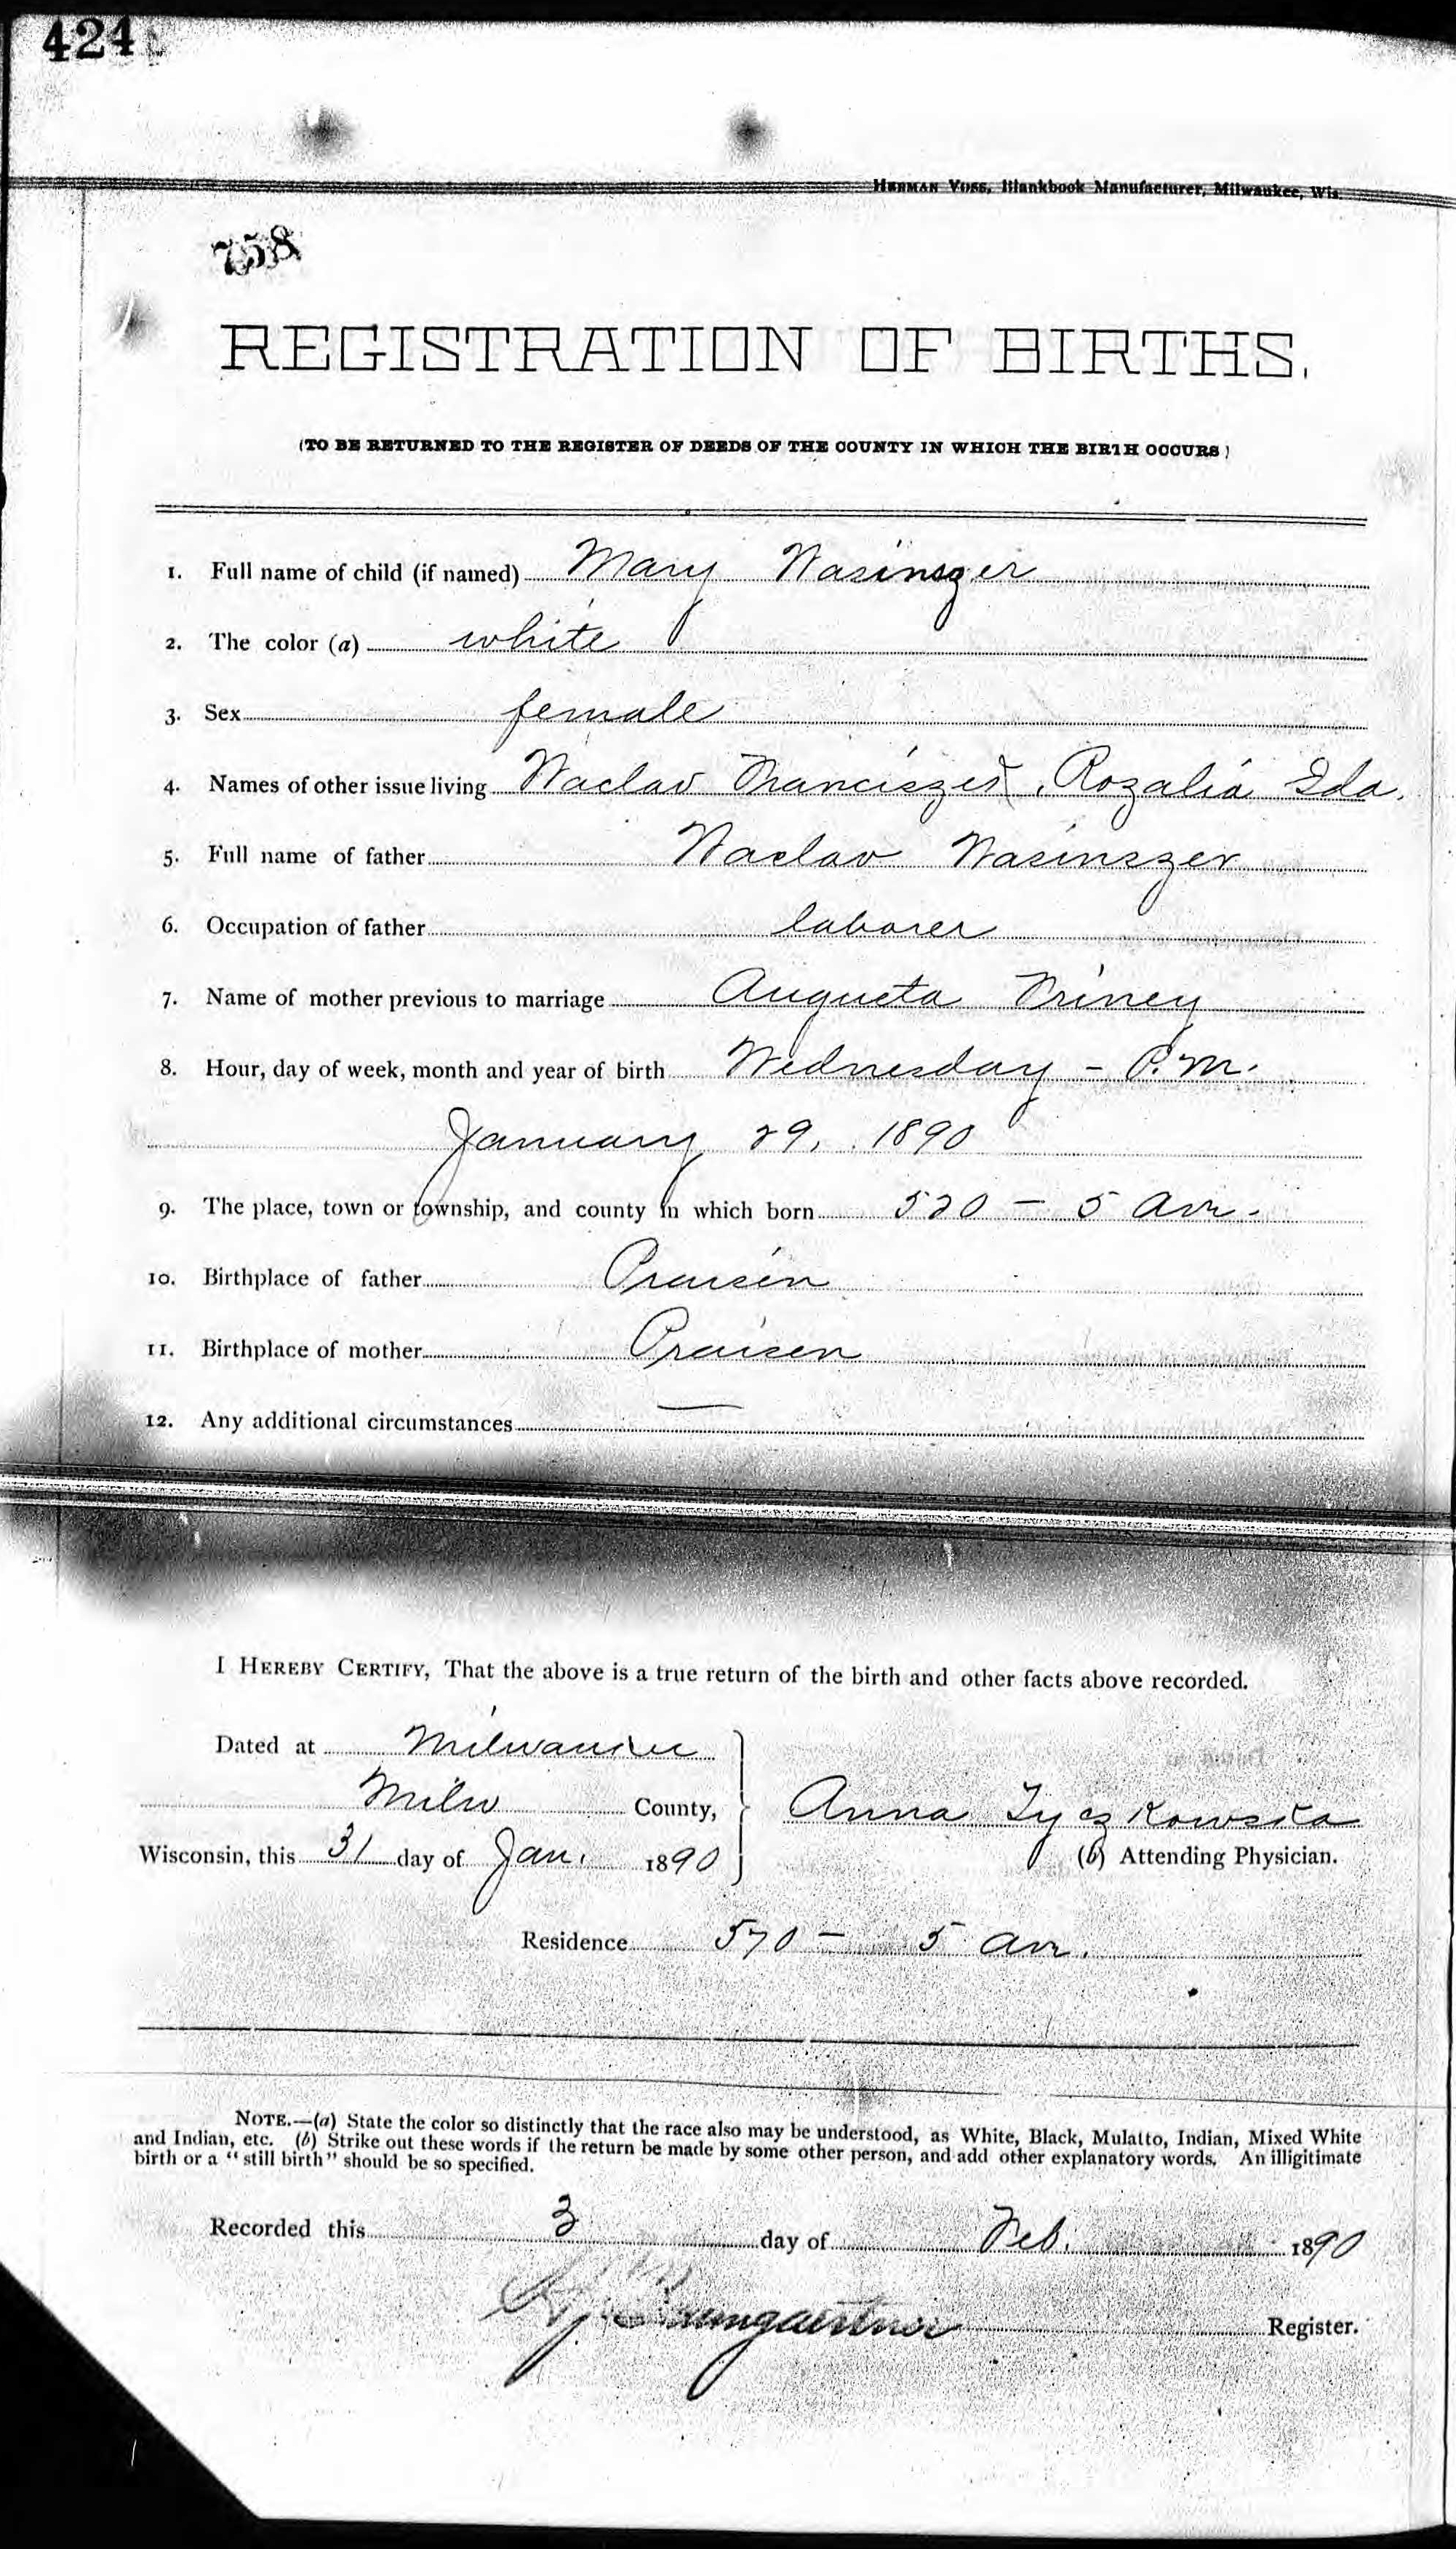 424
HERMAN VOSS, Blankbook Manufacturer, Milwaukee, Wis.
758
REGISTRATION OF BIRTHS.
(TO BE RETURNED TO THE REGISTER OF DEEDS OF THE COUNTY IN WHICH THE BIRTH OCCURS)
1. Full name of child (if named) Mary Wasinszer
2. The color (a) white
3. Sex female
4. Names of other issue living Waclav Franciszek, Rozalia Ida.
5. Full name of father Waclav Wasinszer
6. Occupation of father laborer
7. Name of mother previous to marriage Augusta Briney
8. Hour, day of week, month and year of birth Wednesday - P.M.
January 29, 1890
9. The place, town or township, and county in which born 520 - 5 Ave.
10. Birthplace of father Praisen
11. Birthplace of mother Praisen
12. Any additional circumstances —
I HEREBY CERTIFY, That the above is a true return of the birth and other facts above recorded.
Dated at Milwaukee
Milw County,
Anna Tyczkowska
Wisconsin, this 31 day of Jan. 1890
(b) Attending Physician.
Residence 570 - 5 Ave.
NOTE.—(a) State the color so distinctly that the race also may be understood, as White, Black, Mulatto, Indian, Mixed White
and Indian, etc. (b) Strike out these words if the return be made by some other person, and add other explanatory words. An illigitimate
birth or a "still birth" should be so specified.
Recorded this 3 day of Feb. 1890
Baumgaertner Register.